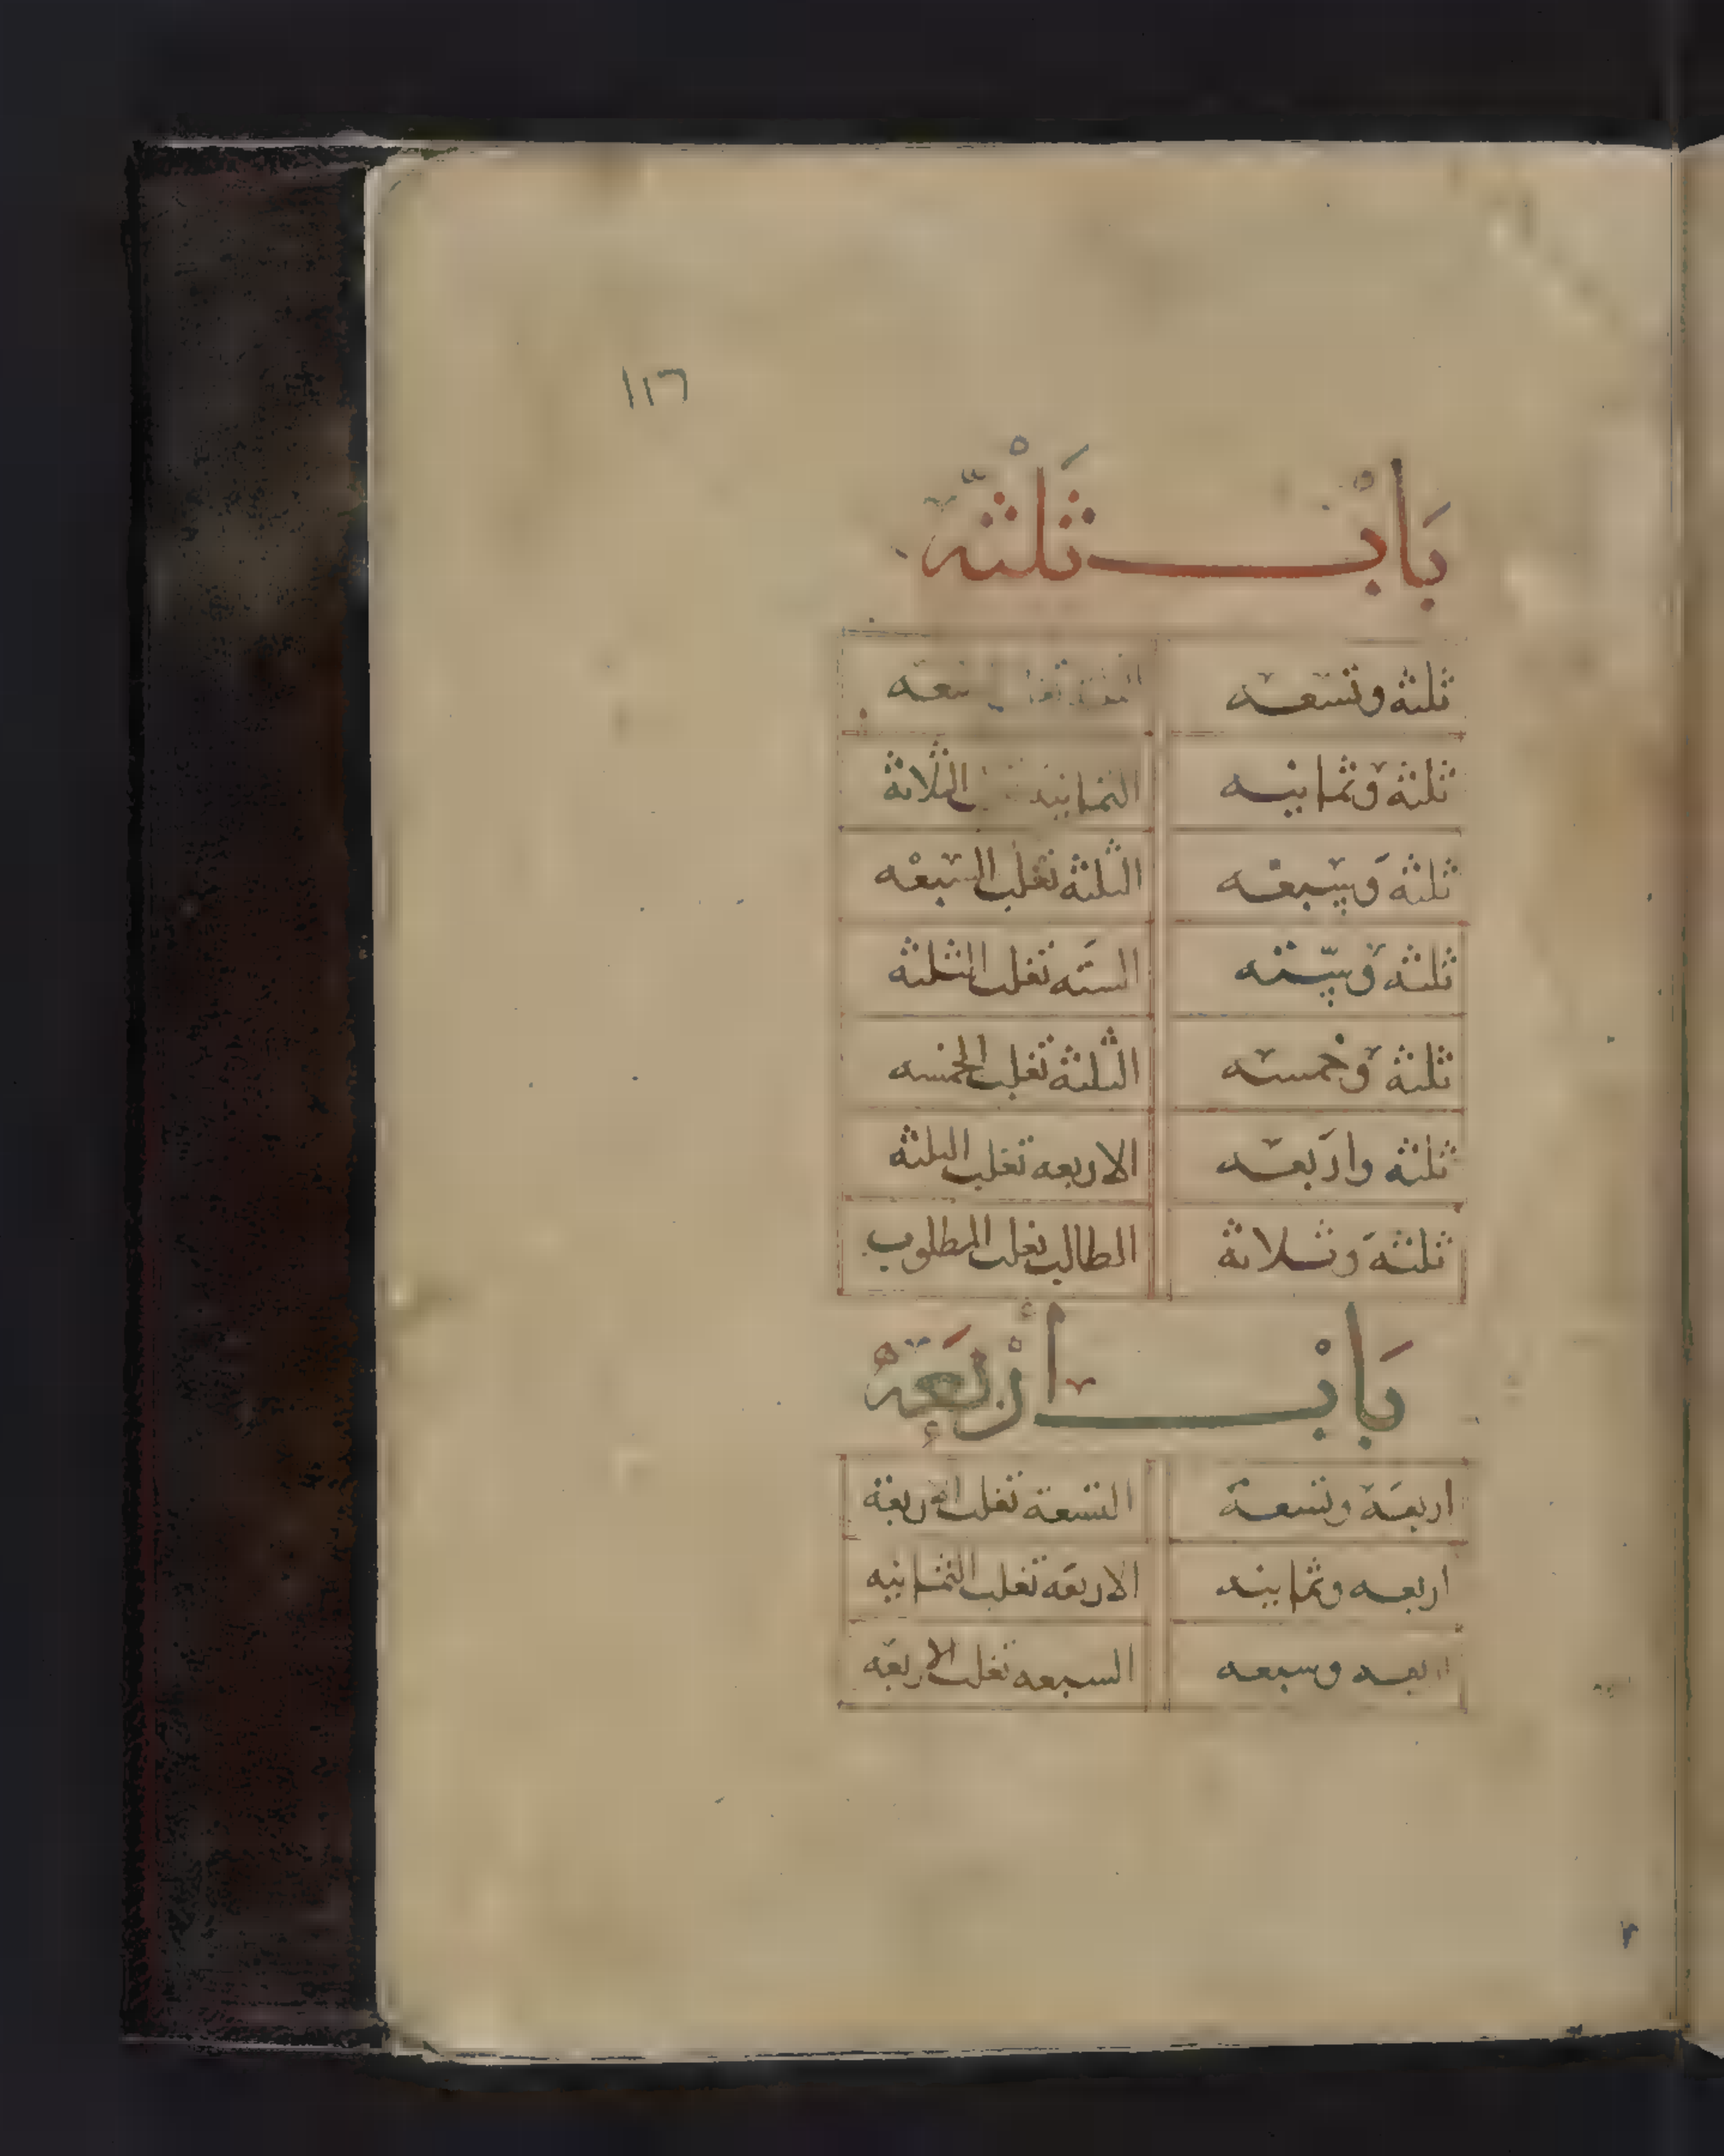 ١١٦
بَابْ ثَلْثَة
ثلثة وتسعه تسعه
ثلثة وثمانيه الثمانيه الثلاثة
ثلثة وسبعه الثلثة تغلب السبعه
ثلثة وستة الستة تغلب الثلثة
ثلثة وخمسه الثلثة تغلب الخمسه
ثلثة واربعه الاربعه تغلب الثلثة
ثلثة وثلاثة الطالب يغلب المطلوب
بَابْ أرْبَعَة
اربعة وتسعة التسعة تغلب الاربعة
اربعه وثمانيه الاربعه تغلب الثمانيه
اربعه وسبعه السبعه تغلب الاربعة